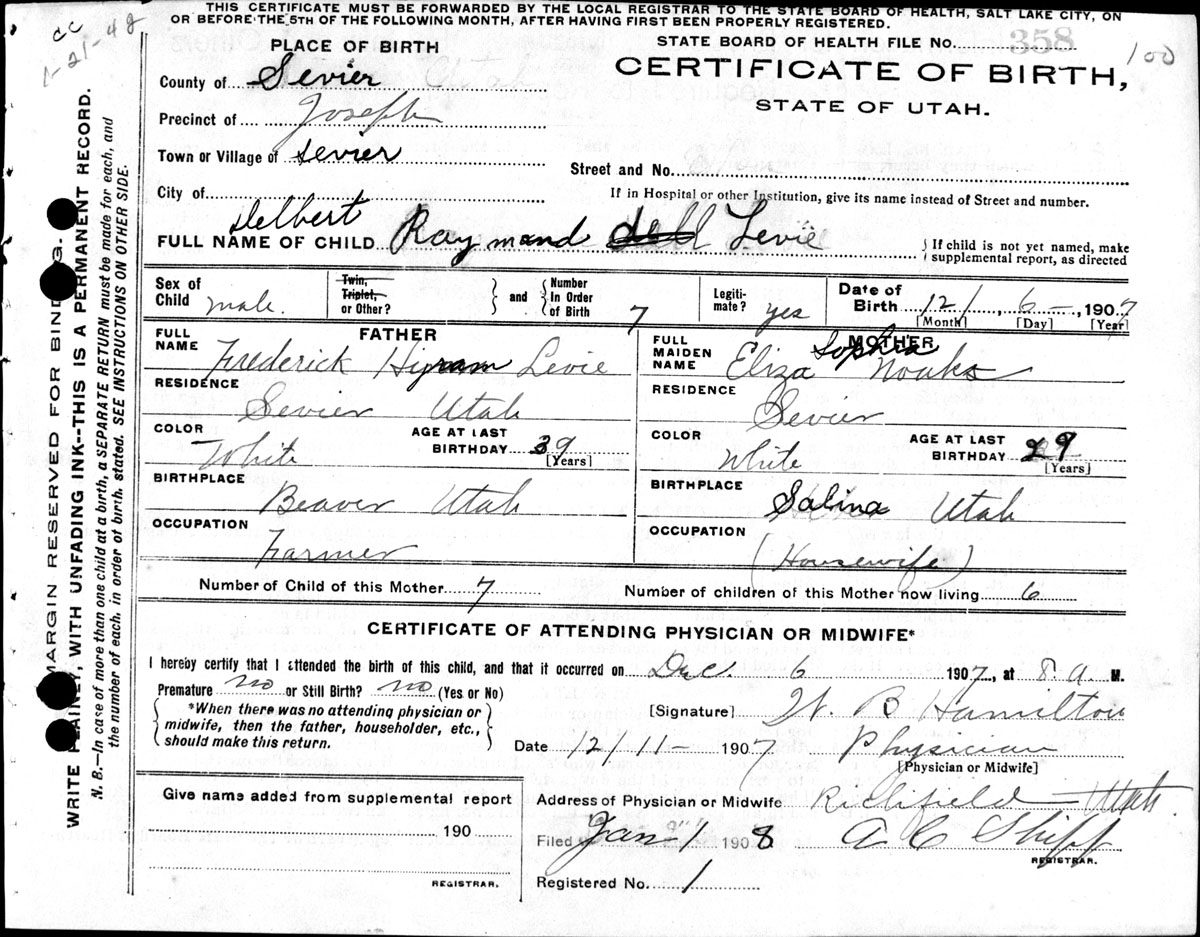 THIS CERTIFICATE MUST BE FORWARDED BY THE LOCAL REGISTRAR TO THE STATE BOARD OF HEALTH, SALT LAKE CITY, ON
OR BEFORE THE 5TH OF THE FOLLOWING MONTH, AFTER HAVING FIRST BEEN PROPERLY REGISTERED.
cc
1-21-48
PLACE OF BIRTH
STATE BOARD OF HEALTH FILE No. 358
100
County of Sevier
CERTIFICATE OF BIRTH,
STATE OF UTAH.
Precinct of Joseph
Town or Village of Sevier
Street and No.
City of
If in Hospital or other Institution, give its name instead of Street and number.
Delbert
FULL NAME OF CHILD Raymand Levie
{ If child is not yet named, make
supplemental report, as directed
Sex of Child male.
Twin, Triplet, or Other?
and { Number In Order of Birth 7
Legitimate? yes
Date of Birth 12/ 6 1907
[Month] [Day] [Year]
FATHER
FULL NAME Frederick Hyram Levie
RESIDENCE
Sevier Utah
COLOR White
AGE AT LAST BIRTHDAY 39
[Years]
BIRTHPLACE
Beaver Utah
OCCUPATION
Farmer
MOTHER
FULL MAIDEN NAME Eliza Sophia Noaks
RESIDENCE
Sevier
COLOR White
AGE AT LAST BIRTHDAY 29
[Years]
BIRTHPLACE
Salina Utah
OCCUPATION
(Housewife)
Number of Child of this Mother 7
Number of children of this Mother now living 6
CERTIFICATE OF ATTENDING PHYSICIAN OR MIDWIFE*
I hereby certify that I attended the birth of this child, and that it occurred on Dec. 6 1907, at 8 a M.
Premature no or Still Birth? no (Yes or No)
{ *When there was no attending physician or
midwife, then the father, householder, etc.,
should make this return. }
[Signature] W. B Hamilton
Date 12/11- 1907
Physician
[Physician or Midwife]
Give name added from supplemental report
190
REGISTRAR.
Address of Physician or Midwife Richfield - Utah
Filed Jan 1 1908 A C Shipp
REGISTRAR.
Registered No. 1
MARGIN RESERVED FOR BINDING.
WRITE PLAINLY, WITH UNFADING INK--THIS IS A PERMANENT RECORD.
N. B.—In case of more than one child at a birth, a SEPARATE RETURN must be made for each, and
the number of each, in order of birth, stated. SEE INSTRUCTIONS ON OTHER SIDE.